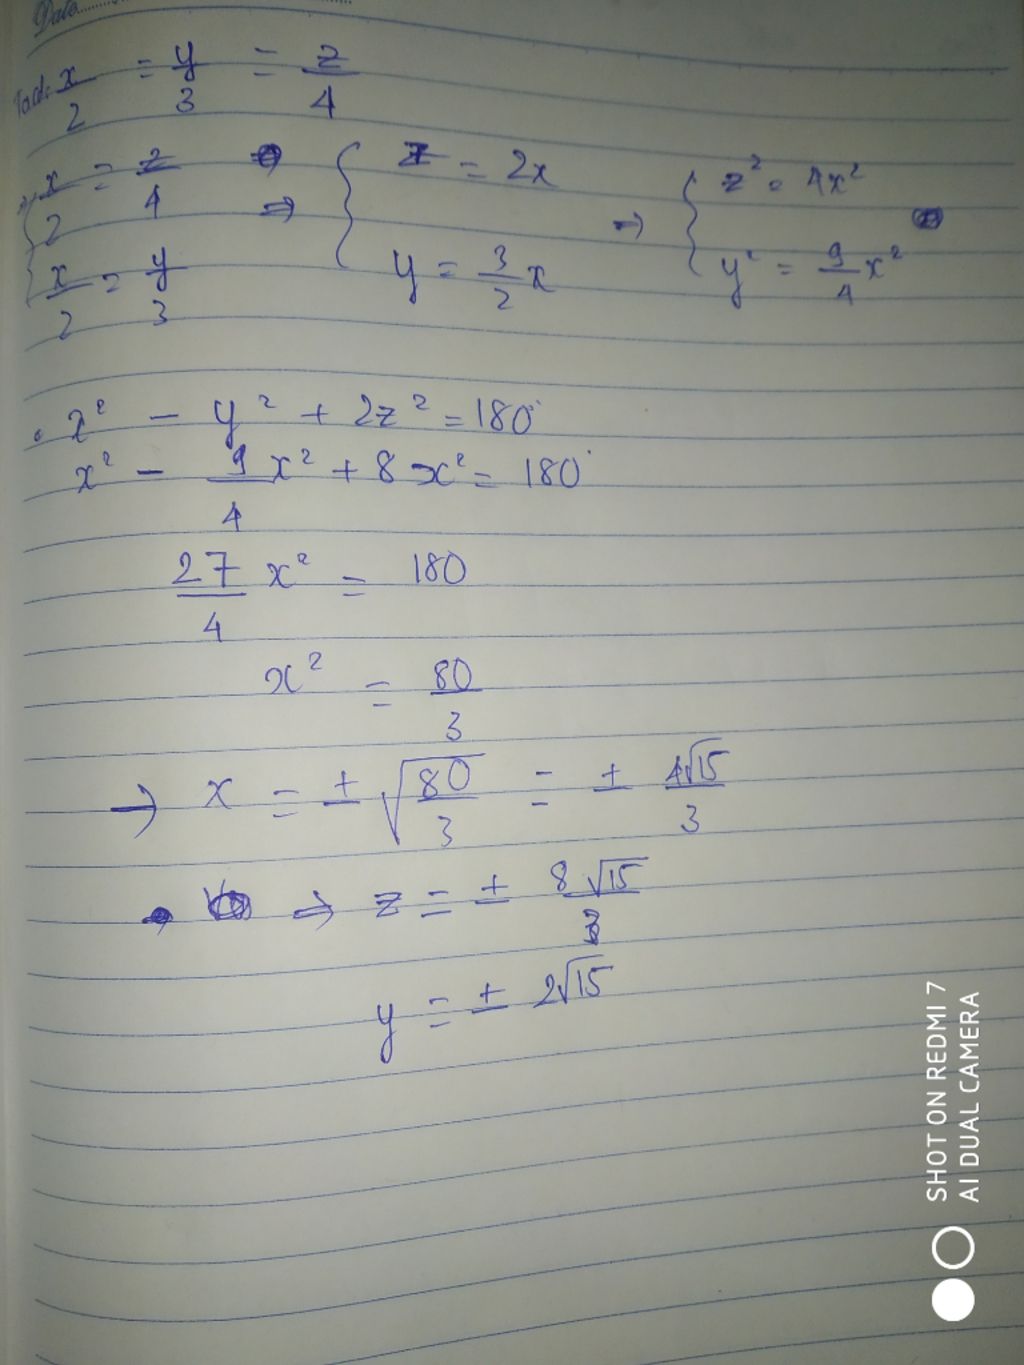 Date
x/2 = y/3 = z/4
x/2 = z/4 ⇒ { z = 2x → { z² = 4x²
x/2 = y/3 y = 3/2 x y² = 9/4 x²
x² - y² + 2z² = 180
x² - 9/4 x² + 8x² = 180
27/4 x² = 180
x² = 80/3
→ x = ± √(80/3) = ± 4√15/3
⇒ z = ± 8√15/3
y = ± 2√15
SHOT ON REDMI 7
AI DUAL CAMERA